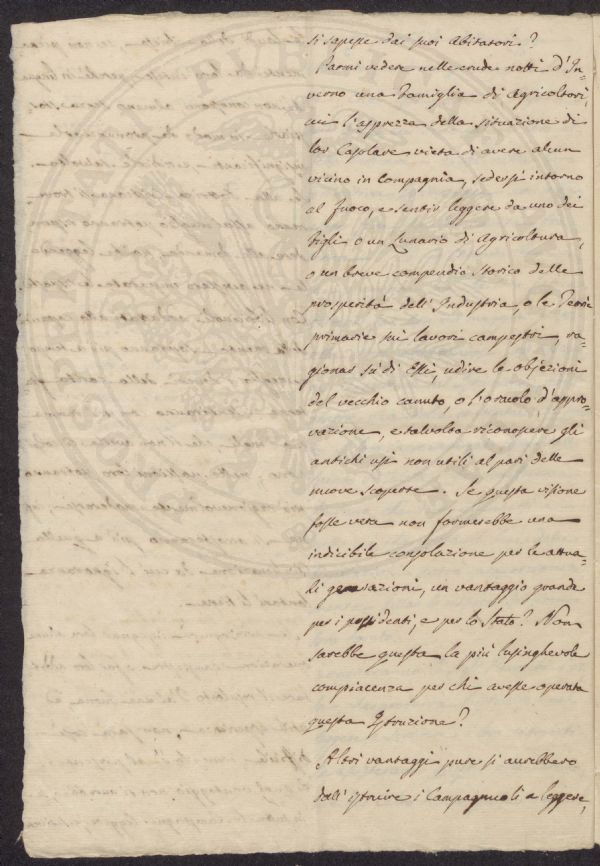 si sapesse dai suoi abitatori?
Parmi vedere nelle crude notti d'In-
verno una Famiglia di Agricoltori,
cui l'asprezza della situazione di
lor Casolare vieta di avere alcun
vicino in Compagnia, sedersi intorno
al Fuoco, e sentir leggere da uno dei
Figli o un Lunario di Agricoltura,
o un breve compendio storico delle
prosperità dell'Industria, o le Teorie
primarie sui lavori campestri, ra-
gionar su di Essi, udire le objezioni
del vecchio canuto, o l'oracolo d'appro-
vazione, e talvolta riconoscere gli
antichi usi non utili al pari delle
nuove scoperte. Se questa visione
fosse vera non formerebbe una
indicibile consolazione per le attua-
li generazioni, un vantaggio grande
per i possidenti, e per lo Stato? Non
sarebbe questa la più lusinghevole
compiacenza per chi avesse operata
questa Istruzione?
Altri vantaggi pure si avrebbero
dall'istruire i Campagnuoli a leggere,